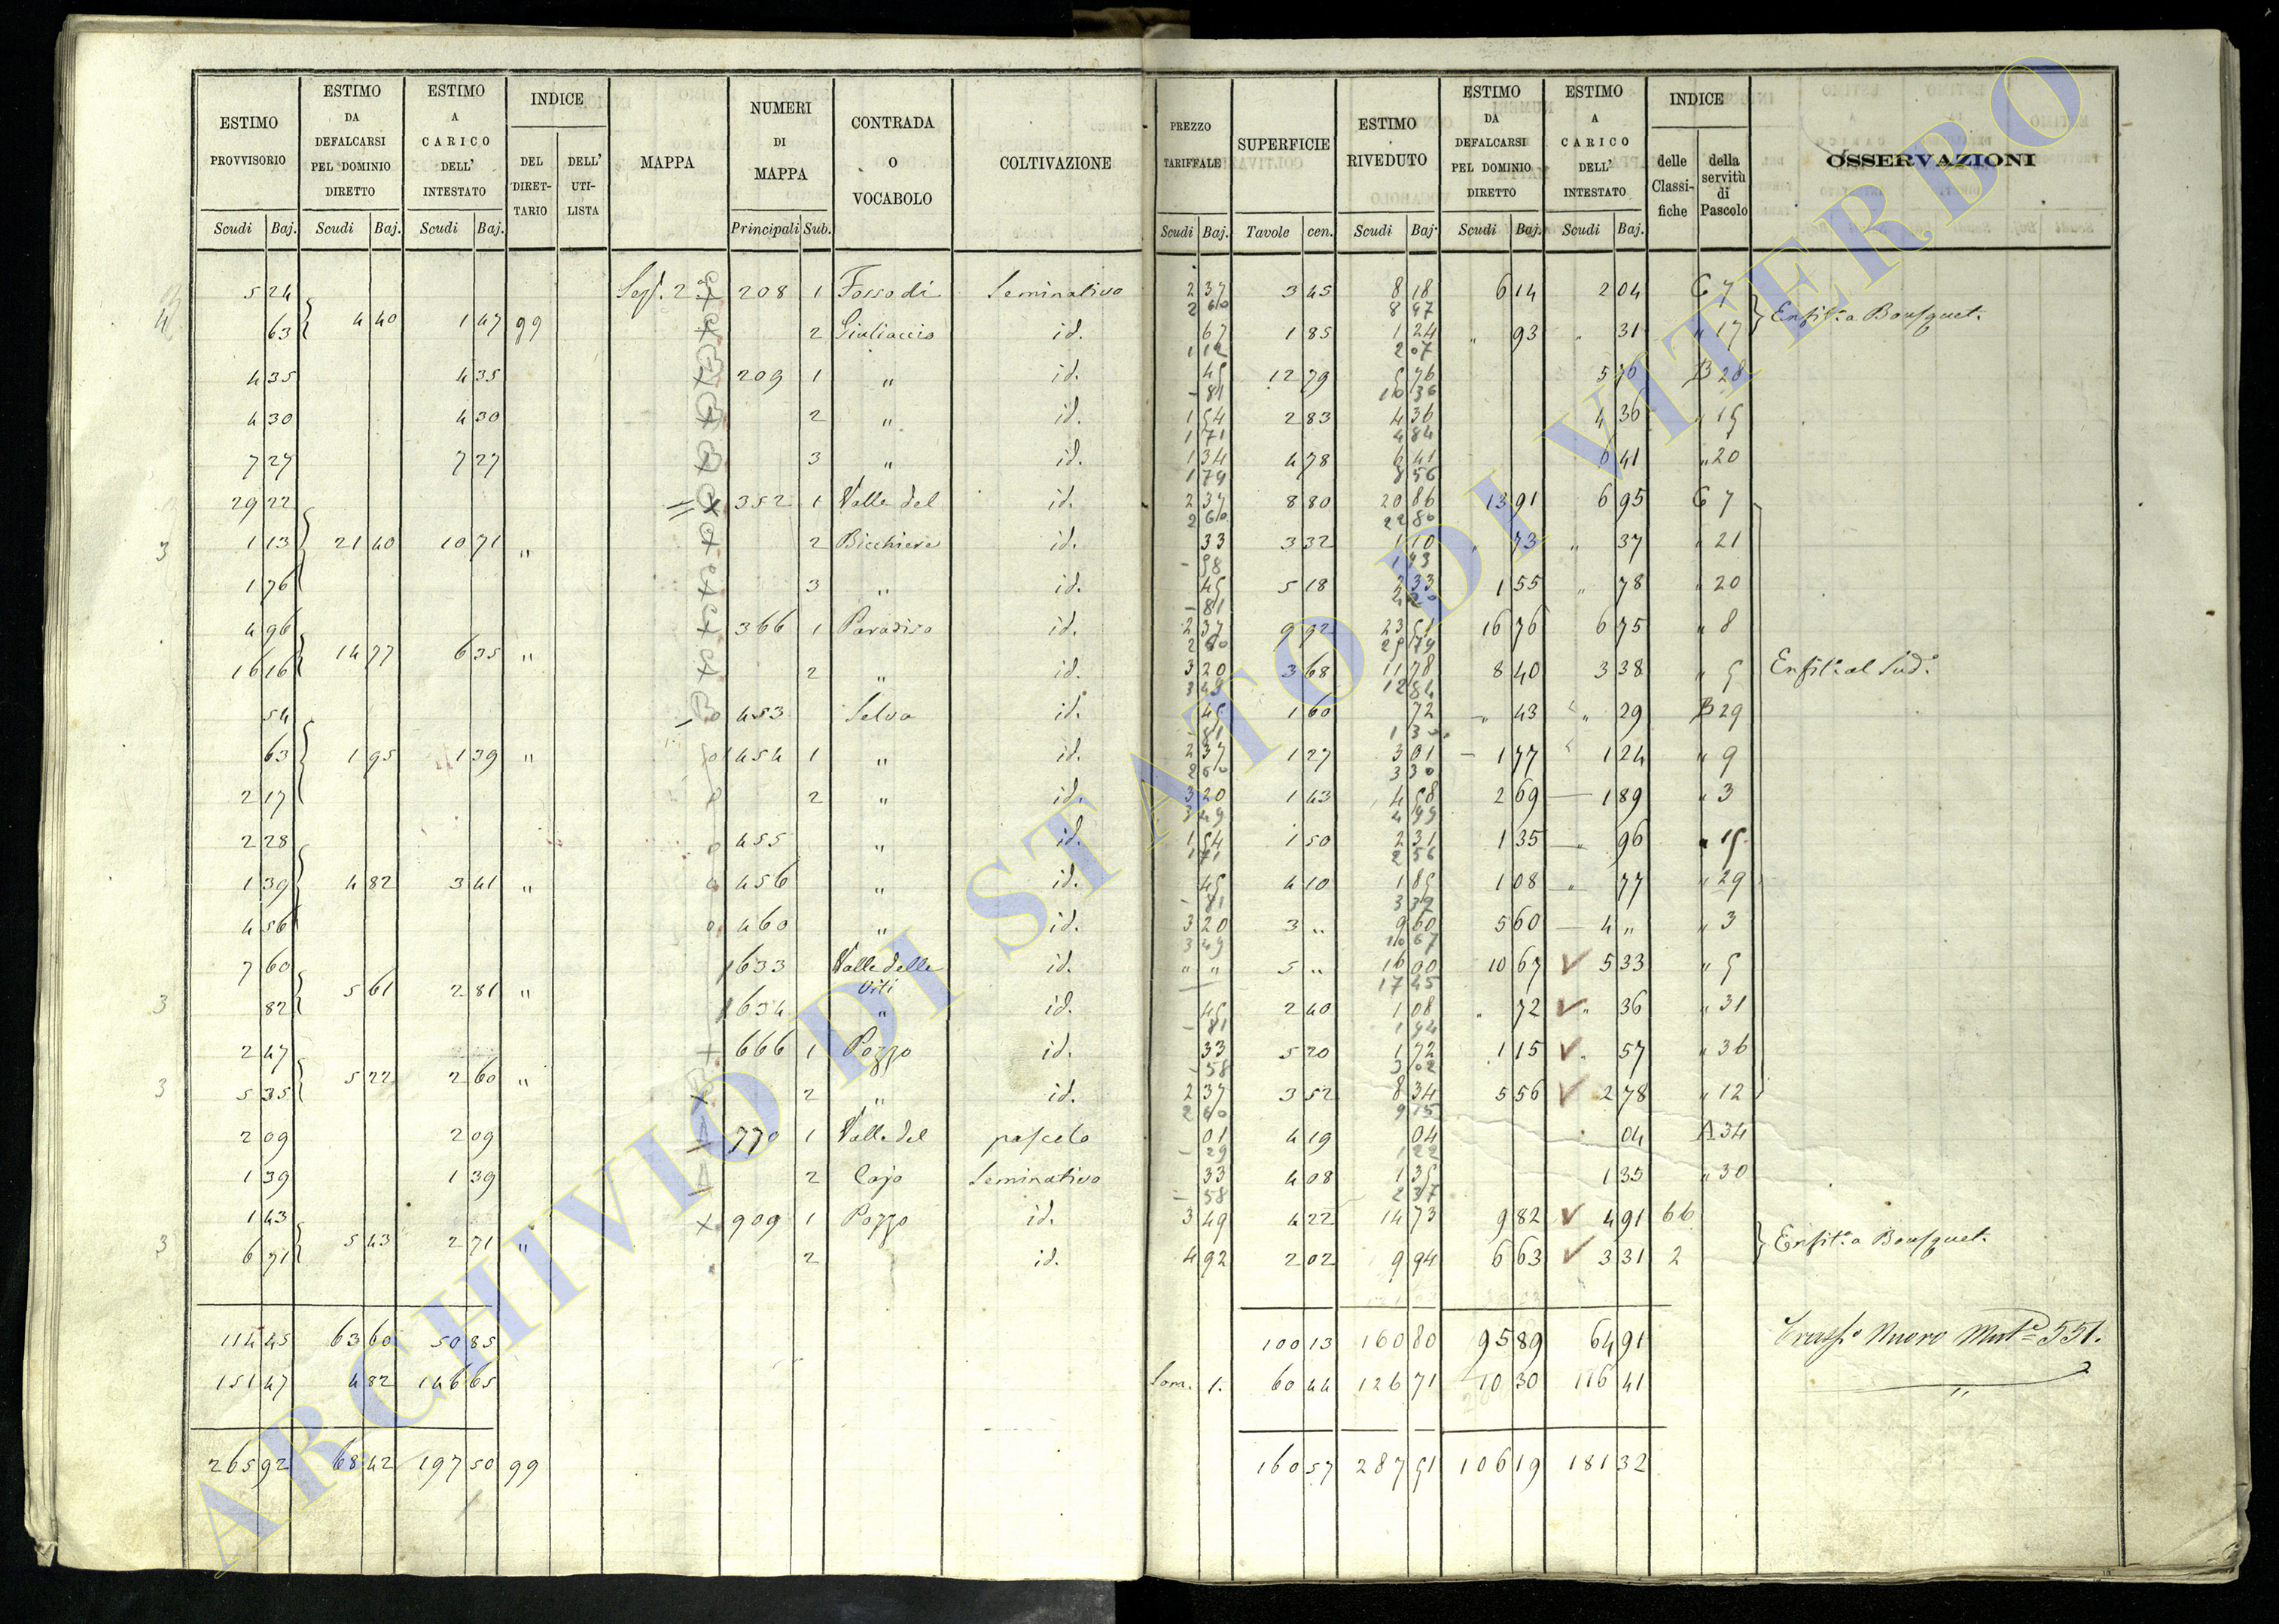 ESTIMO PROVVISORIO | ESTIMO DA DEFALCARSI PEL DOMINIO DIRETTO | ESTIMO A CARICO DELL' INTESTATO | INDICE | MAPPA | NUMERI DI MAPPA | CONTRADA O VOCABOLO | COLTIVAZIONE | PREZZO TARIFFALE | SUPERFICIE | ESTIMO RIVEDUTO | ESTIMO DA DEFALCARSI PEL DOMINIO DIRETTO | ESTIMO A CARICO DELL' INTESTATO | INDICE | OSSERVAZIONI
DEL DIRET-TARIO | DELL' UTI-LISTA | delle Classi-fiche | della servitù di Pascolo
Scudi | Baj. | Scudi | Baj. | Scudi | Baj. | Principali | Sub. | Scudi | Baj. | Tavole | cen. | Scudi | Baj. | Scudi | Baj. | Scudi | Baj.
5 24 | 208 | 1 | Fosso di | Seminativo | 2 37 | 3 45 | 8 18 | 6 14 | 2 04 | 7
2 60 | 8 97
4 40 | 1 47 | 99 | Enfit. a Bousquet.
63 | 2 | Giuliaccio | id. | 67 | 1 85 | 1 24 | " 93 | " 31 | " 17
1 12 | 2 07
4 35 | 4 35 | 209 | 1 | " | id. | 45 | 12 79 | 5 76 | 5 76 | B 28
- 81 | 10 36
4 30 | 4 30 | 2 | " | id. | 1 54 | 2 83 | 4 36 | 4 36 | " 15
1 71 | 4 84
7 27 | 7 27 | 3 | " | id. | 1 34 | 4 78 | 6 41 | 6 41 | " 20
1 79 | 8 56
29 22 | 352 | 1 | Valle del | id. | 2 37 | 8 80 | 20 86 | 13 91 | 6 95 | 7
2 60 | 22 80
3 | 1 13 | 21 40 | 10 71 | " | 2 | Bicchiere | id. | 33 | 3 32 | 1 10 | " 73 | " 37 | " 21
- 58 | 1 93
1 76 | 3 | " | id. | 45 | 5 18 | 2 33 | 1 55 | " 78 | " 20
- 81 | 4 20
4 96 | 366 | 1 | Paradiso | id. | 2 37 | 9 92 | 23 51 | 16 76 | 6 75 | " 8
2 60 | 25 79
14 77 | 6 35 | "
16 16 | 2 | " | id. | 3 20 | 3 68 | 11 78 | 8 40 | 3 38 | " 5 | Enfit. al Sud.
3 49 | 12 84
54 | 453 | Selva | id. | 45 | 1 60 | 72 | " 43 | " 29 | B 29
- 81 | 1 30
63 | 1 95 | 1 39 | " | 454 | 1 | " | id. | 2 37 | 1 27 | 3 01 | 1 77 | 1 24 | " 9
2 60 | 3 30
2 17 | 2 | " | id. | 3 20 | 1 43 | 4 58 | 2 69 | 1 89 | " 3
3 49 | 4 99
2 28 | 455 | " | id. | 1 54 | 1 50 | 2 31 | 1 35 | " 96 | " 15
1 71 | 2 56
1 39 | 4 82 | 3 41 | " | 456 | " | id. | 45 | 4 10 | 1 85 | 1 08 | " 77 | " 29
- 81 | 3 32
4 56 | 460 | " | id. | 3 20 | 3 " | 9 60 | 5 60 | 4 " | " 3
3 49 | 10 47
7 60 | 633 | Valle delle | id. | " " | 5 " | 16 00 | 10 67 | 5 33 | " 5
Viti | 17 45
5 61 | 2 81 | "
3 | 82 | 634 | " | id. | 45 | 2 40 | 1 08 | " 72 | " 36 | " 31
- 81 | 1 94
2 47 | 666 | 1 | Pozzo | id. | 33 | 5 20 | 1 72 | 1 15 | " 57 | " 36
- 58 | 3 02
5 22 | 2 60 | "
3 | 5 35 | 2 | " | id. | 2 37 | 3 52 | 8 34 | 5 56 | 2 78 | " 12
2 60 | 9 15
2 09 | 2 09 | 770 | 1 | Valle del | pascolo | 01 | 4 19 | 04 | 04 | A 34
- 29 | 1 22
1 39 | 1 39 | 2 | Cajo | Seminativo | 33 | 4 08 | 1 35 | 1 35 | " 30
- 58 | 2 37
1 43 | 909 | 1 | Pozzo | id. | 3 49 | 4 22 | 14 73 | 9 82 | 4 91
3 | 5 43 | 2 71 | " | Enfit. a Bousquet.
6 71 | 2 | id. | 4 92 | 2 02 | 9 94 | 6 63 | 3 31 | 2
114 45 | 63 60 | 50 85 | 100 13 | 160 80 | 95 89 | 64 91 | Nuovo 551.
151 47 | 4 82 | 146 65 | Som. 1. | 60 44 | 126 71 | 10 30 | 116 41
265 92 | 68 42 | 197 50 | 99 | 160 57 | 287 51 | 106 19 | 181 32
ARCHIVIO DI STATO DI VITERBO